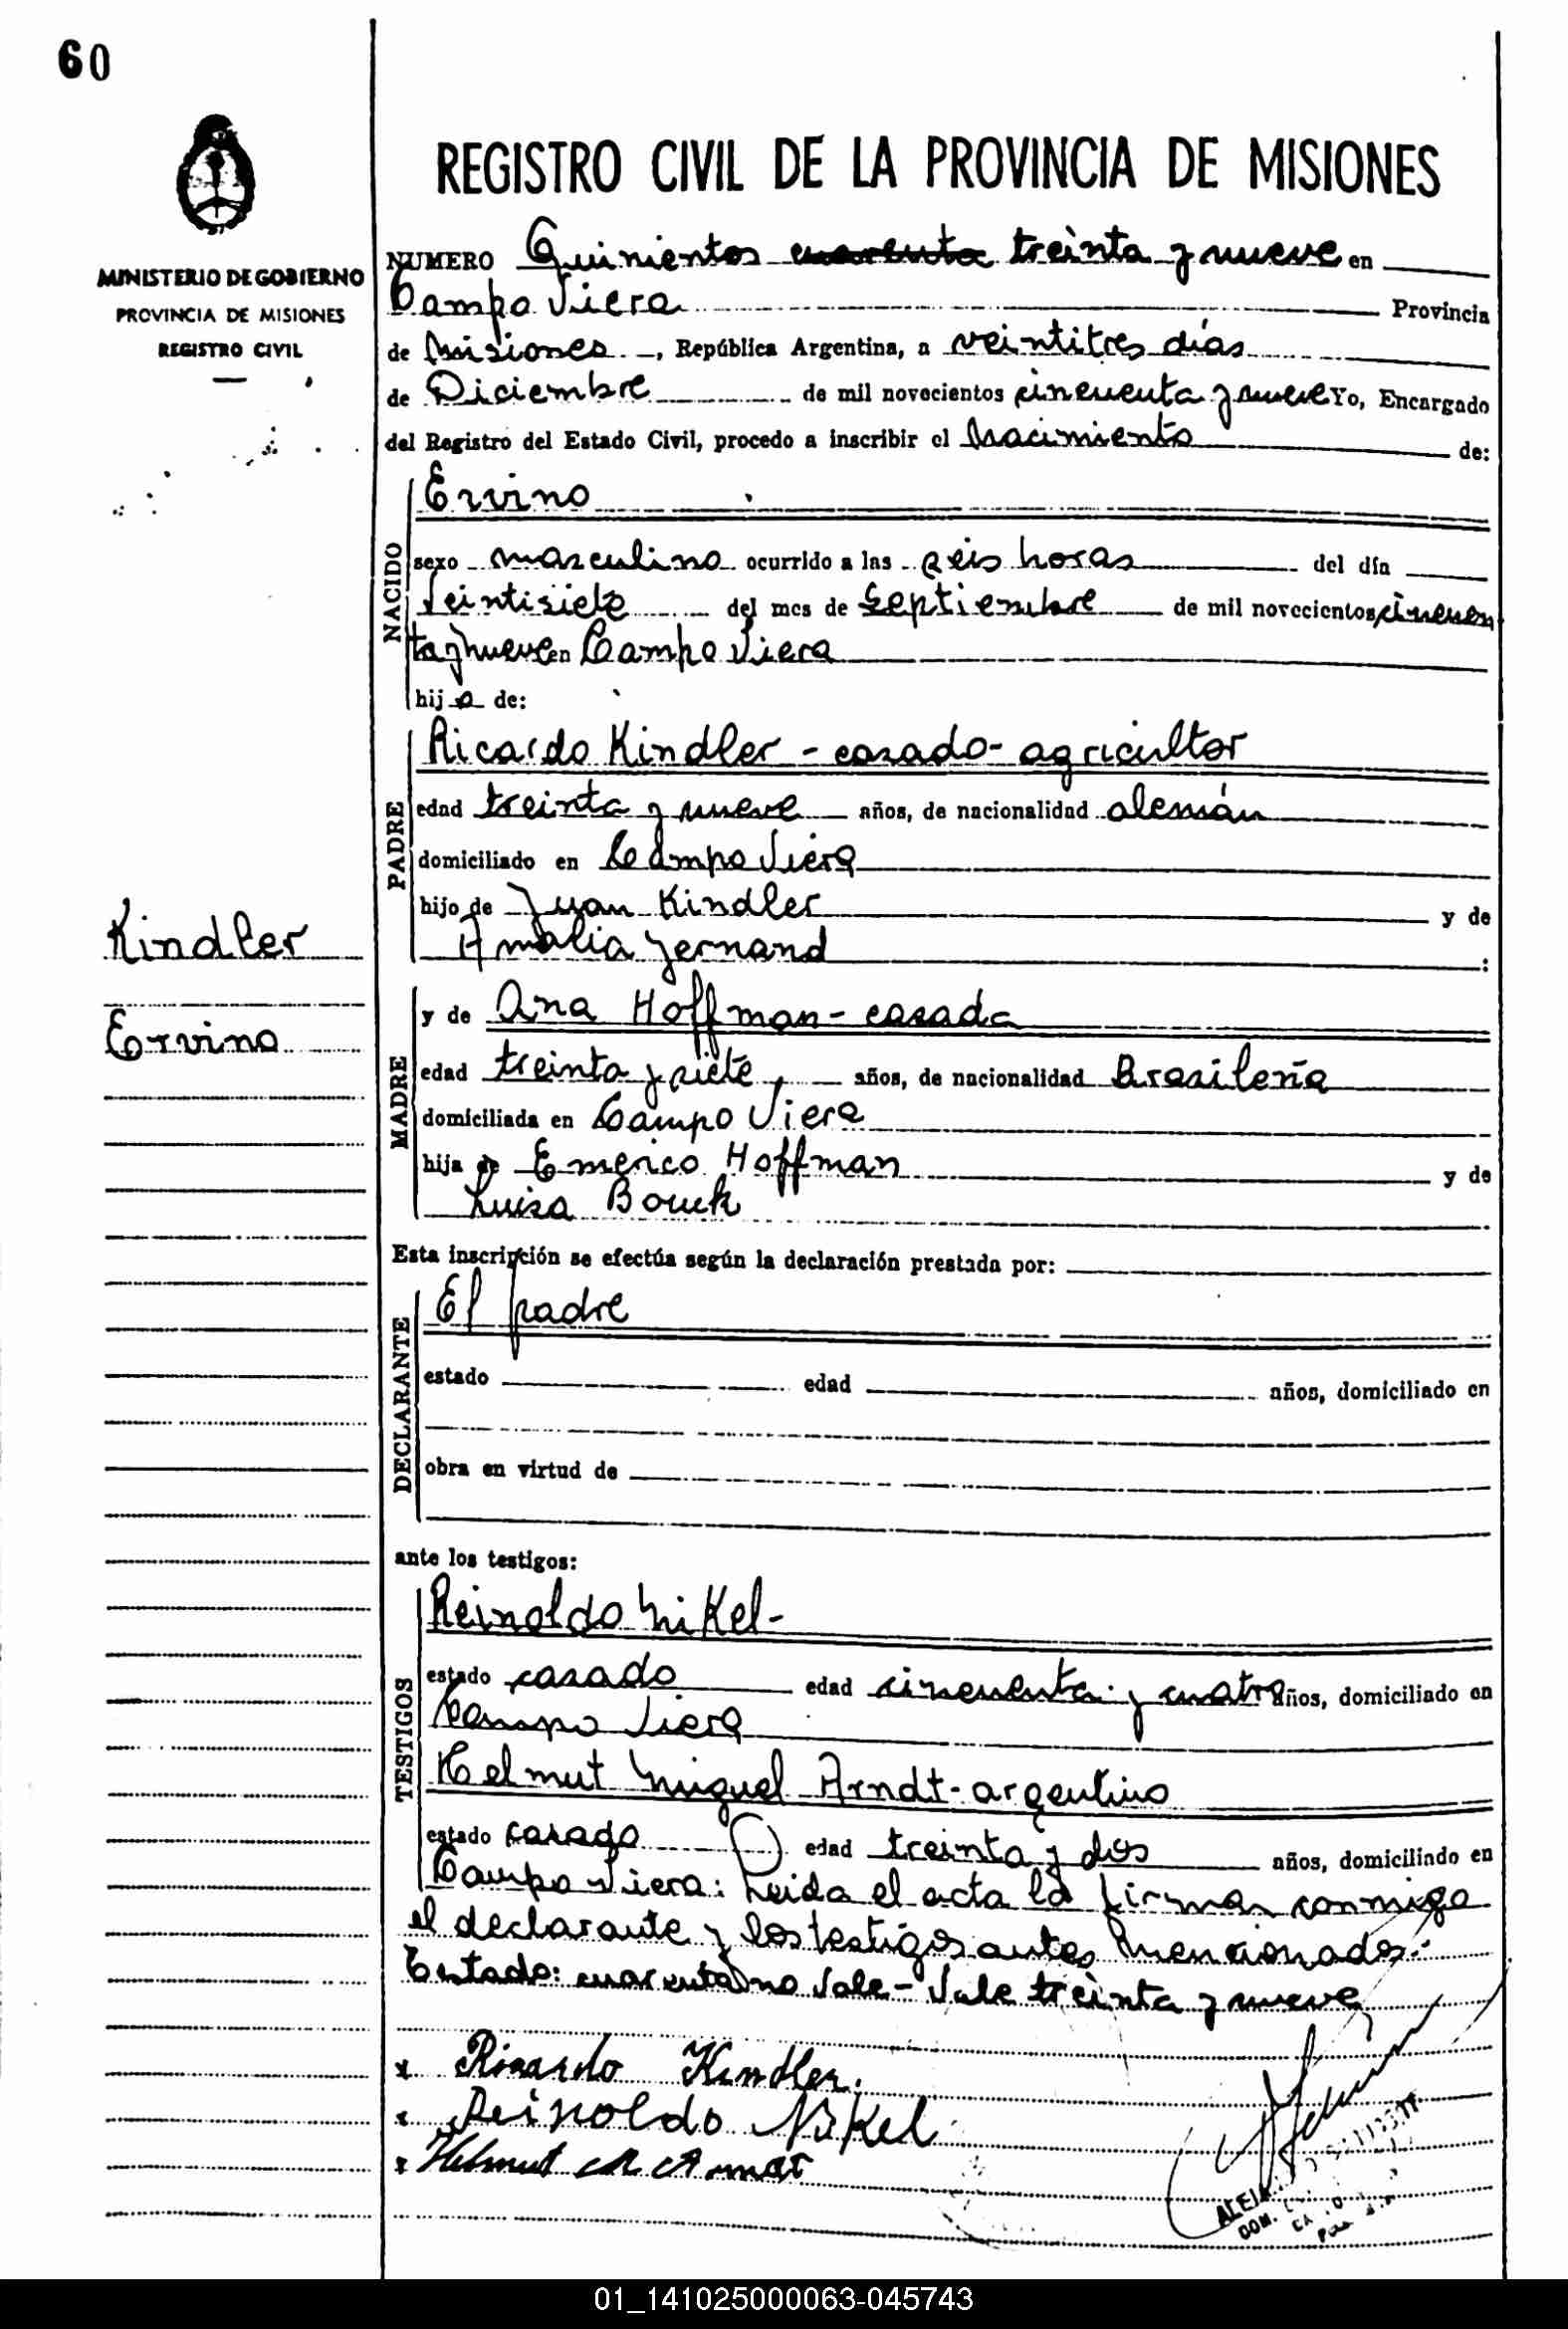 60
REGISTRO CIVIL DE LA PROVINCIA DE MISIONES
MINISTERIO DE GOBIERNO
PROVINCIA DE MISIONES
REGISTRO CIVIL
NUMERO Quinientos cuarenta treinta y nueve en
Campo Viera Provincia
de Misiones, República Argentina, a veintitres días
de Diciembre de mil novecientos cincuenta y nueve Yo, Encargado
del Registro del Estado Civil, procedo a inscribir el Nacimiento de:
NACIDO
Ervino
sexo masculino ocurrido a las seis horas del día
Veintisiete del mes de Septiembre de mil novecientos cincuen
ta y nueve en Campo Viera
hijo de:
PADRE
Ricardo Kindler - casado - agricultor
edad treinta y nueve años, de nacionalidad alemán
domiciliado en Campo Viera
hijo de Juan Kindler y de
Amalia Jernand :
Kindler
Ervino
MADRE
y de Ana Hoffman - casada
edad treinta y siete, años, de nacionalidad Brasileña
domiciliada en Campo Viera
hija de Emerico Hoffman y de
Luisa Bouck
Esta inscripción se efectúa según la declaración prestada por:
DECLARANTE
El padre
estado edad años, domiciliado en
obra en virtud de
ante los testigos:
TESTIGOS
Reinoldo Nikel-
estado casado edad cincuenta y cuatro años, domiciliado en
Campo Viera
Helmut Miguel Arndt - argentino
estado casado edad treinta y dos años, domiciliado en
Campo Viera: Leida el acta la firman conmigo
el declarante y los testigos antes mencionados.-
Testado: cuarenta no vale - Vale treinta y nueve
x Ricardo Kindler.
x Reinoldo Nikel
x Helmut M Arndt
01_141025000063-045743